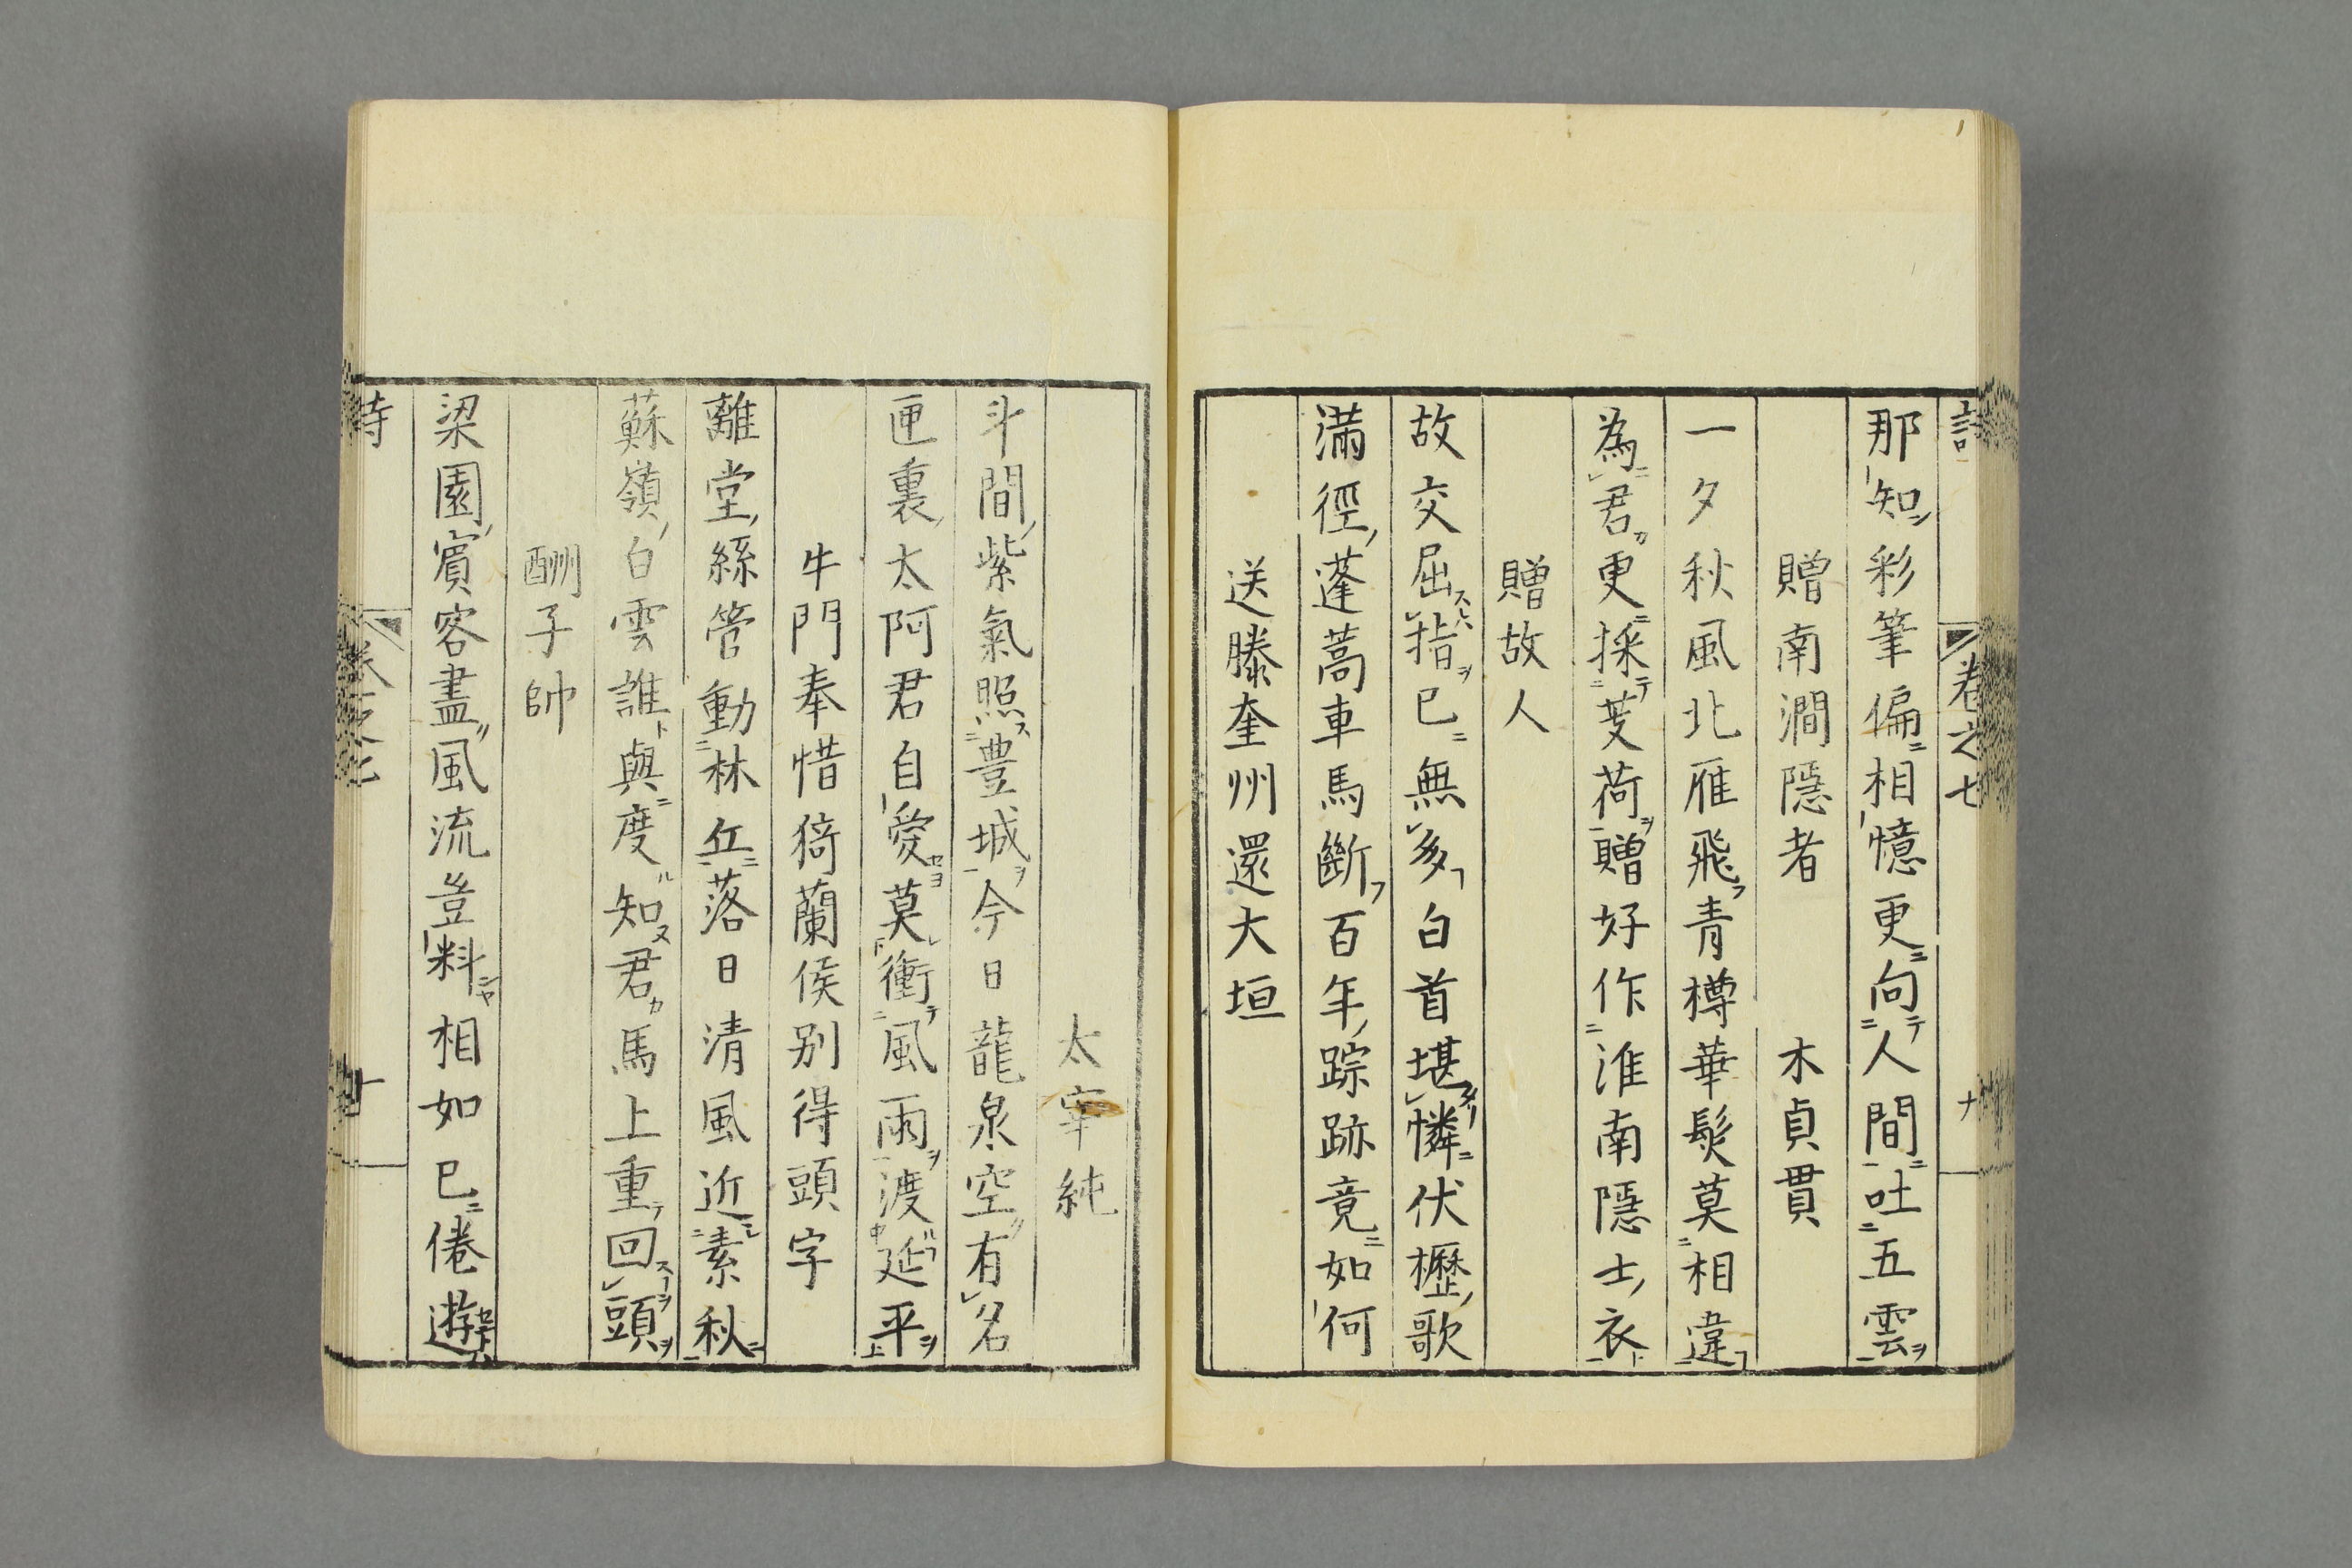 卷之七
那知彩筆偏相憶更向人間吐五雲
贈南澗隱者 木貞貫
一夕秋風北雁飛青樽華髮莫相違
為君更採芰荷贈好作淮南隱士衣
贈故人
故交屈指已無多白首堪憐伏櫪歌
滿徑蓬蒿車馬斷百年踪跡竟如何
送滕奎州還大垣
太宰純
斗間紫氣照豊城今日龍泉空有名
匣裏太阿君自愛莫衝風雨渡延平
牛門奉惜猗蘭侯別得頭字
離堂絲管動林丘落日清風近素秋
蘇嶺白雲誰與度知君馬上重回頭
酬子帥
梁園賓客盡風流豈料相如已倦遊